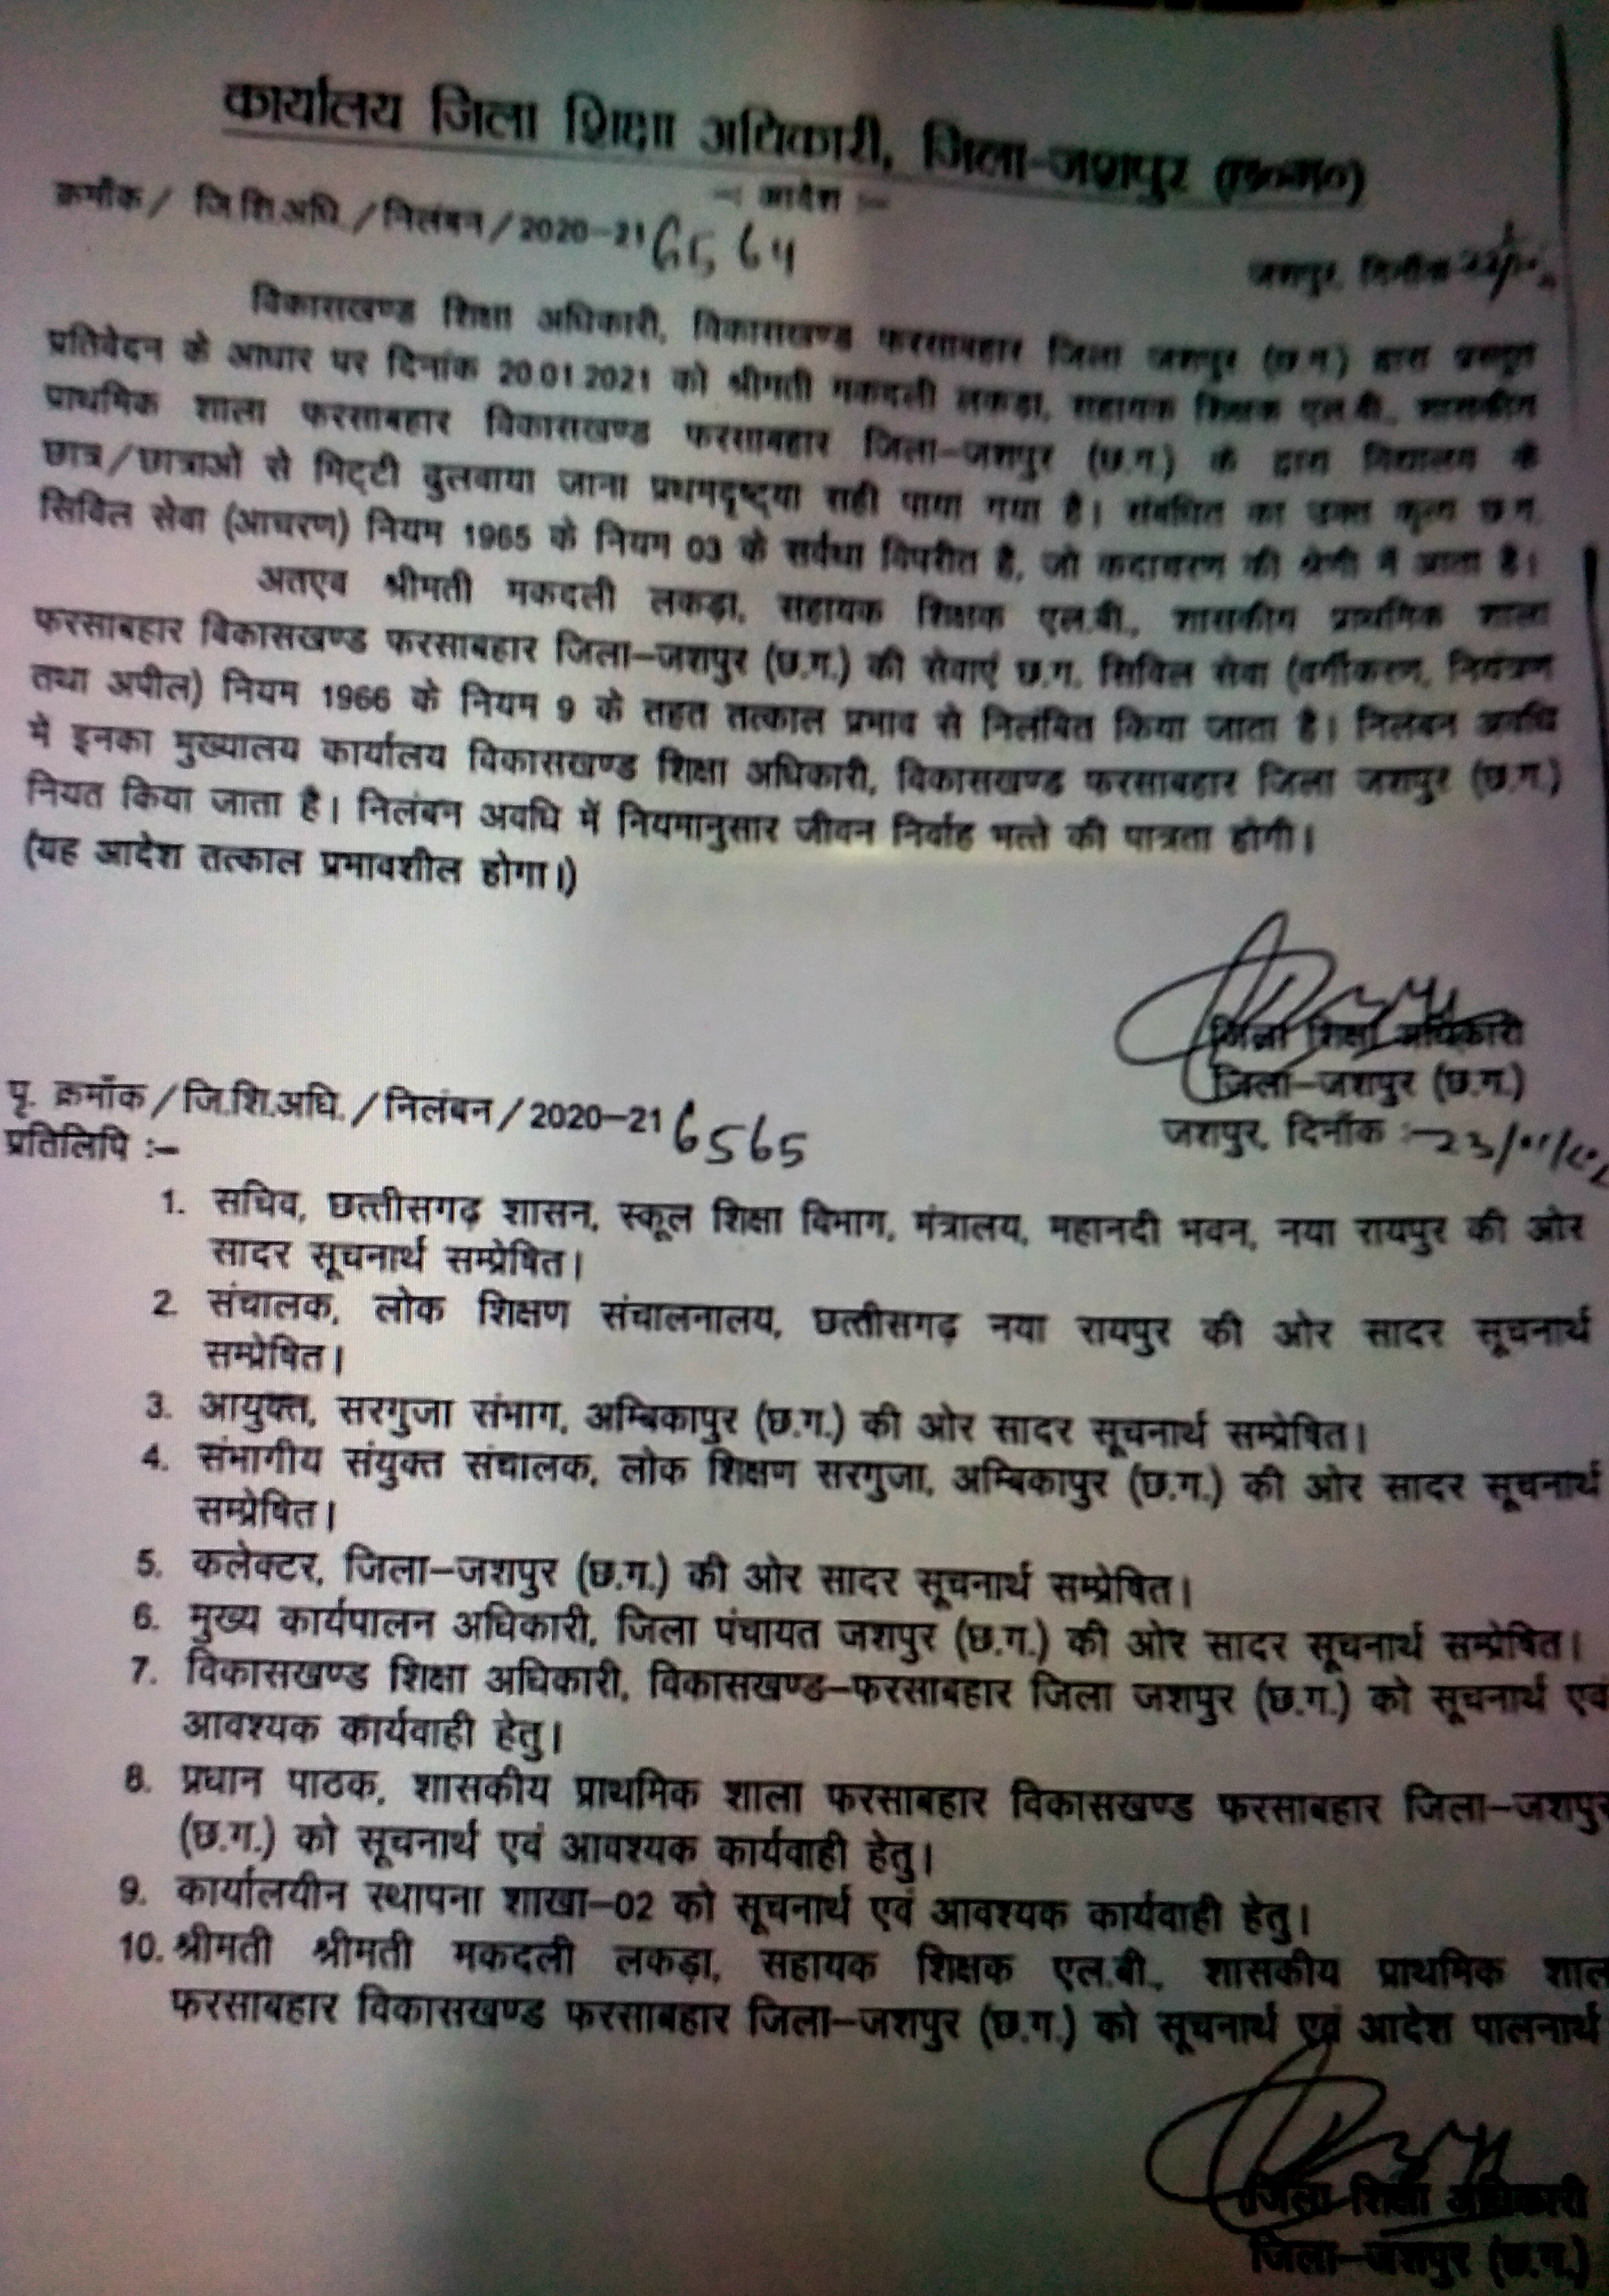 कार्यालय जिला शिक्षा अधिकारी, जिला-जशपुर (छ०ग०)
—: आदेश :—
क्रमाँक / जि.शि.अधि. / निलंबन / 2020–21 6564
जशपुर, दिनाँक
विकासखण्ड शिक्षा अधिकारी, विकासखण्ड फरसाबहार जिला जशपुर (छ.ग.) द्वारा प्रस्तुत
प्रतिवेदन के आधार पर दिनांक 20.01.2021 को श्रीमती मकदली लकड़ा, सहायक शिक्षक एल.बी., शासकीय
प्राथमिक शाला फरसाबहार विकासखण्ड फरसाबहार जिला–जशपुर (छ.ग.) के द्वारा विद्यालय के
छात्र/छात्राओं से मिट्टी ढुलवाया जाना प्रथमदृष्ट्या सही पाया गया है। संबंधित का उक्त कृत्य छ.ग.
सिविल सेवा (आचरण) नियम 1965 के नियम 03 के सर्वथा विपरीत है, जो कदाचरण की श्रेणी में आता है।
अतएव श्रीमती मकदली लकड़ा, सहायक शिक्षक एल.बी., शासकीय प्राथमिक शाला
फरसाबहार विकासखण्ड फरसाबहार जिला–जशपुर (छ.ग.) की सेवाएं छ.ग. सिविल सेवा (वर्गीकरण, नियंत्रण
तथा अपील) नियम 1966 के नियम 9 के तहत तत्काल प्रभाव से निलंबित किया जाता है। निलंबन अवधि
में इनका मुख्यालय कार्यालय विकासखण्ड शिक्षा अधिकारी, विकासखण्ड फरसाबहार जिला जशपुर (छ.ग.)
नियत किया जाता है। निलंबन अवधि में नियमानुसार जीवन निर्वाह भत्ते की पात्रता होगी।
(यह आदेश तत्काल प्रभावशील होगा।)
जिला शिक्षा अधिकारी
जिला–जशपुर (छ.ग.)
पृ. क्रमाँक / जि.शि.अधि. / निलंबन / 2020–21 6565
जशपुर, दिनाँक :–
प्रतिलिपि :–
1. सचिव, छत्तीसगढ़ शासन, स्कूल शिक्षा विभाग, मंत्रालय, महानदी भवन, नया रायपुर की ओर
सादर सूचनार्थ सम्प्रेषित।
2. संचालक, लोक शिक्षण संचालनालय, छत्तीसगढ़ नया रायपुर की ओर सादर सूचनार्थ
सम्प्रेषित।
3. आयुक्त, सरगुजा संभाग, अम्बिकापुर (छ.ग.) की ओर सादर सूचनार्थ सम्प्रेषित।
4. संभागीय संयुक्त संचालक, लोक शिक्षण सरगुजा, अम्बिकापुर (छ.ग.) की ओर सादर सूचनार्थ
सम्प्रेषित।
5. कलेक्टर, जिला–जशपुर (छ.ग.) की ओर सादर सूचनार्थ सम्प्रेषित।
6. मुख्य कार्यपालन अधिकारी, जिला पंचायत जशपुर (छ.ग.) की ओर सादर सूचनार्थ सम्प्रेषित।
7. विकासखण्ड शिक्षा अधिकारी, विकासखण्ड–फरसाबहार जिला जशपुर (छ.ग.) को सूचनार्थ एवं
आवश्यक कार्यवाही हेतु।
8. प्रधान पाठक, शासकीय प्राथमिक शाला फरसाबहार विकासखण्ड फरसाबहार जिला–जशपुर
(छ.ग.) को सूचनार्थ एवं आवश्यक कार्यवाही हेतु।
9. कार्यालयीन स्थापना शाखा–02 को सूचनार्थ एवं आवश्यक कार्यवाही हेतु।
10. श्रीमती श्रीमती मकदली लकड़ा, सहायक शिक्षक एल.बी., शासकीय प्राथमिक शाल
फरसाबहार विकासखण्ड फरसाबहार जिला–जशपुर (छ.ग.) को सूचनार्थ एवं आदेश पालनार्थ
जिला शिक्षा अधिकारी
जिला–जशपुर (छ.ग.)